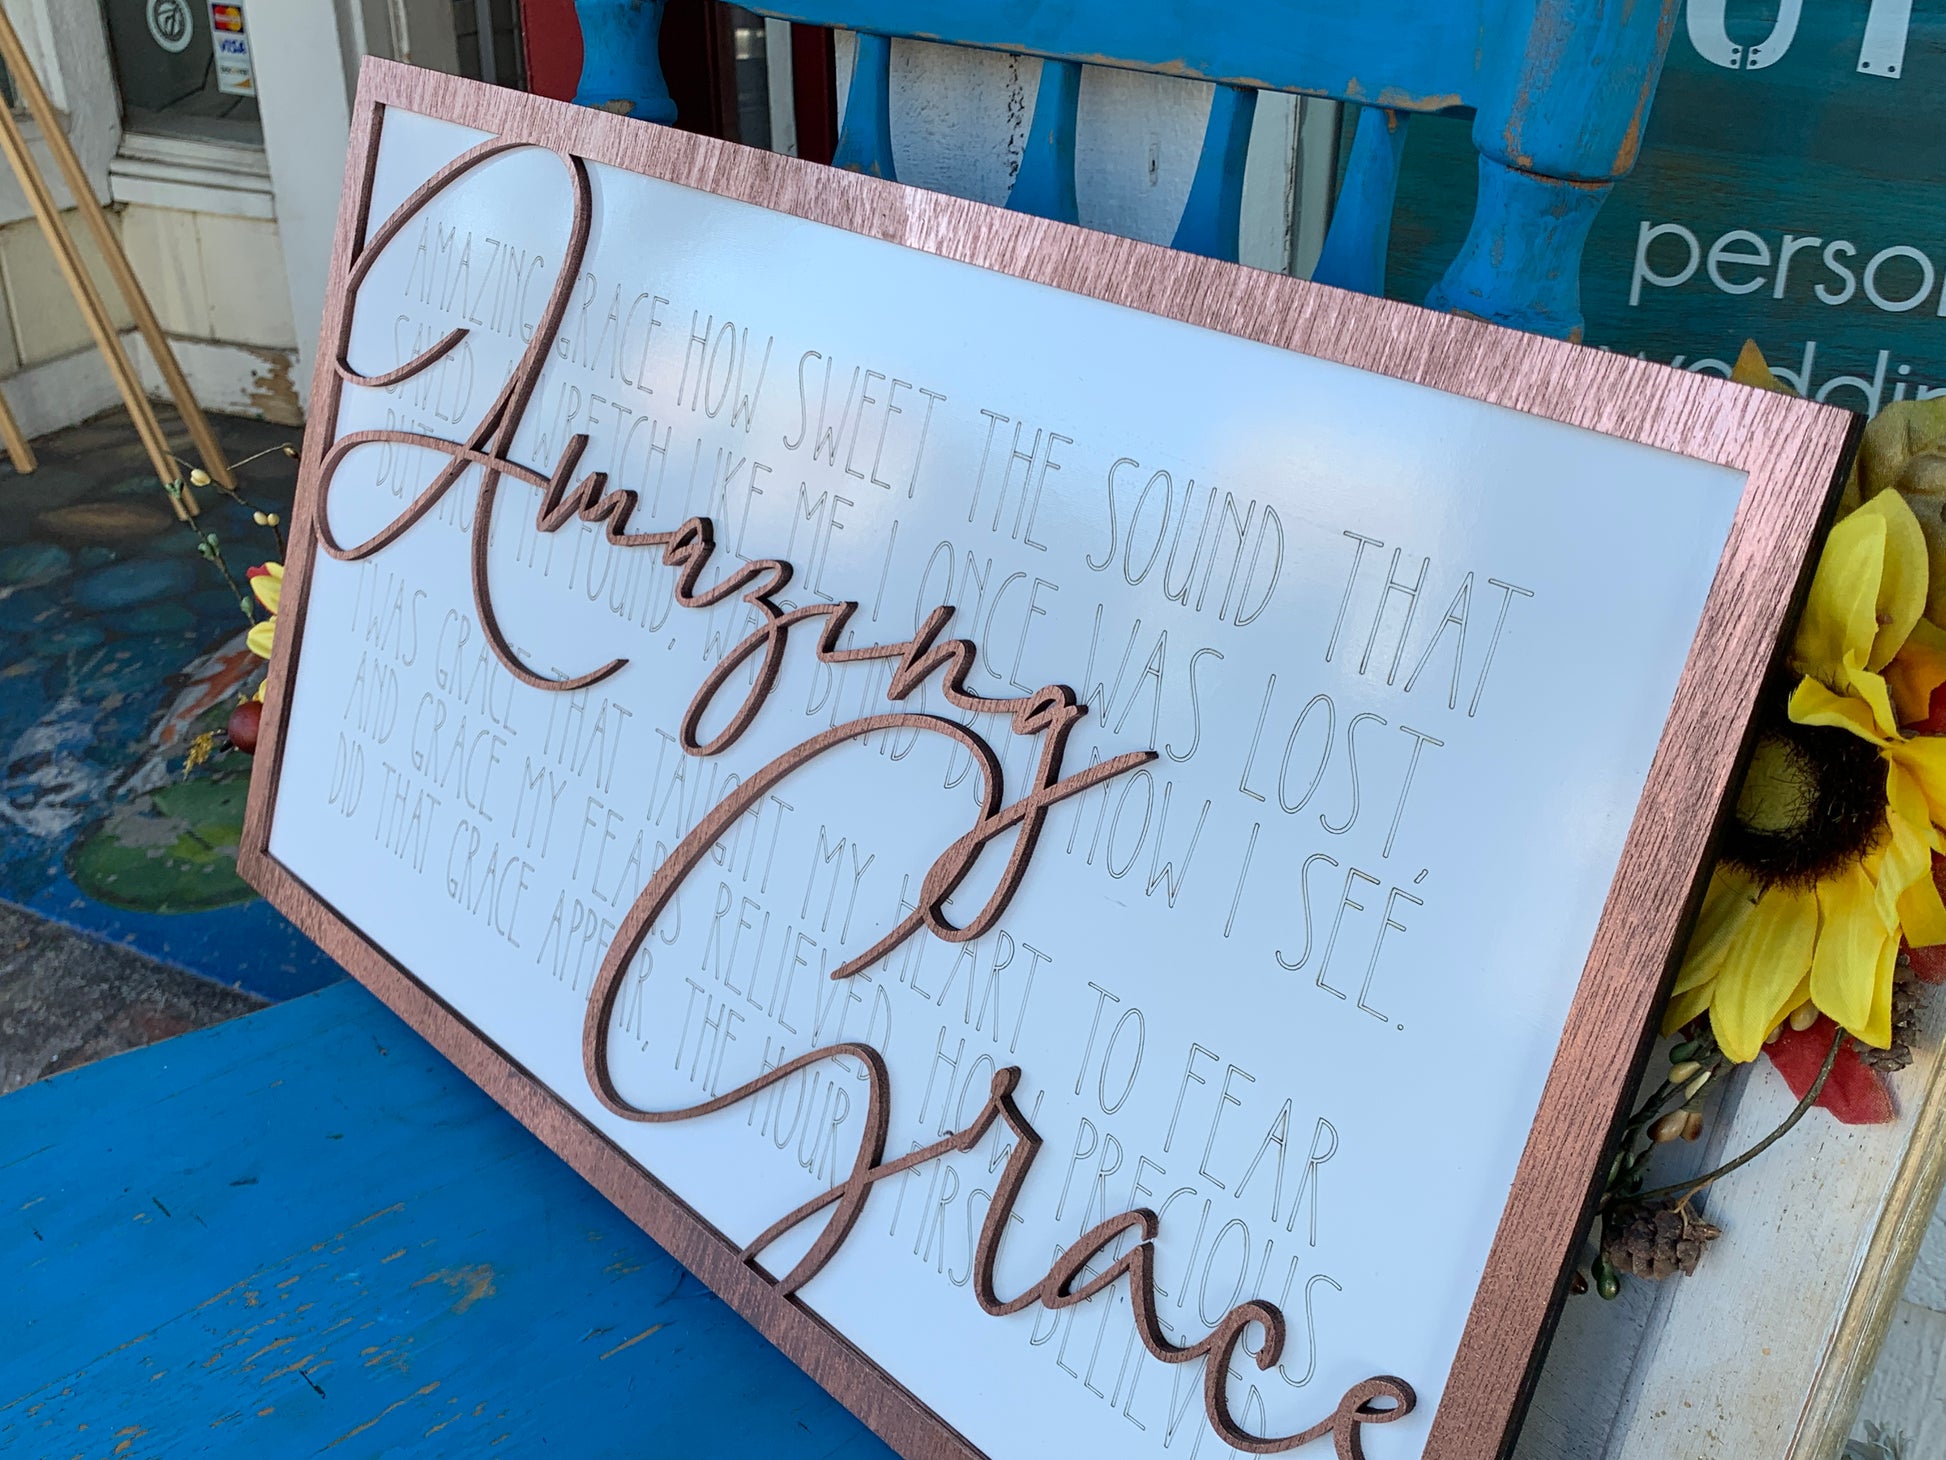 VISA
perso
weddin
Amazing
Grace
AMAZING GRACE HOW SWEET THE SOUND THAT
SAVED A WRETCH LIKE ME I ONCE WAS LOST
BUT NOW I'M FOUND, WAS BLIND BUT NOW I SEÉ.
T'WAS GRACE THAT TAUGHT MY HEART TO FEAR
AND GRACE MY FEARS RELIEVED HOW PRECIOUS
DID THAT GRACE APPEAR, THE HOUR I FIRST BELIEVED